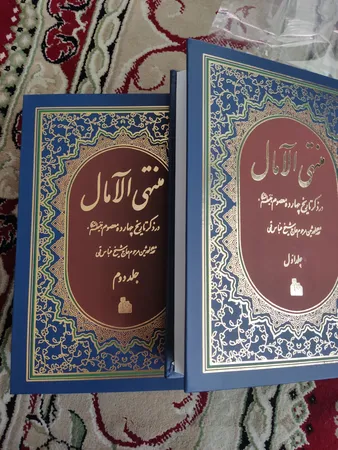 منتهی الآمال
در ذکر تاریخ چهارده معصوم
ثقة المحدثین مرحوم حاج شیخ عباس قمی
جلد اول
منتهی الآمال
در ذکر تاریخ چهارده معصوم
ثقة المحدثین مرحوم حاج شیخ عباس قمی
جلد دوم